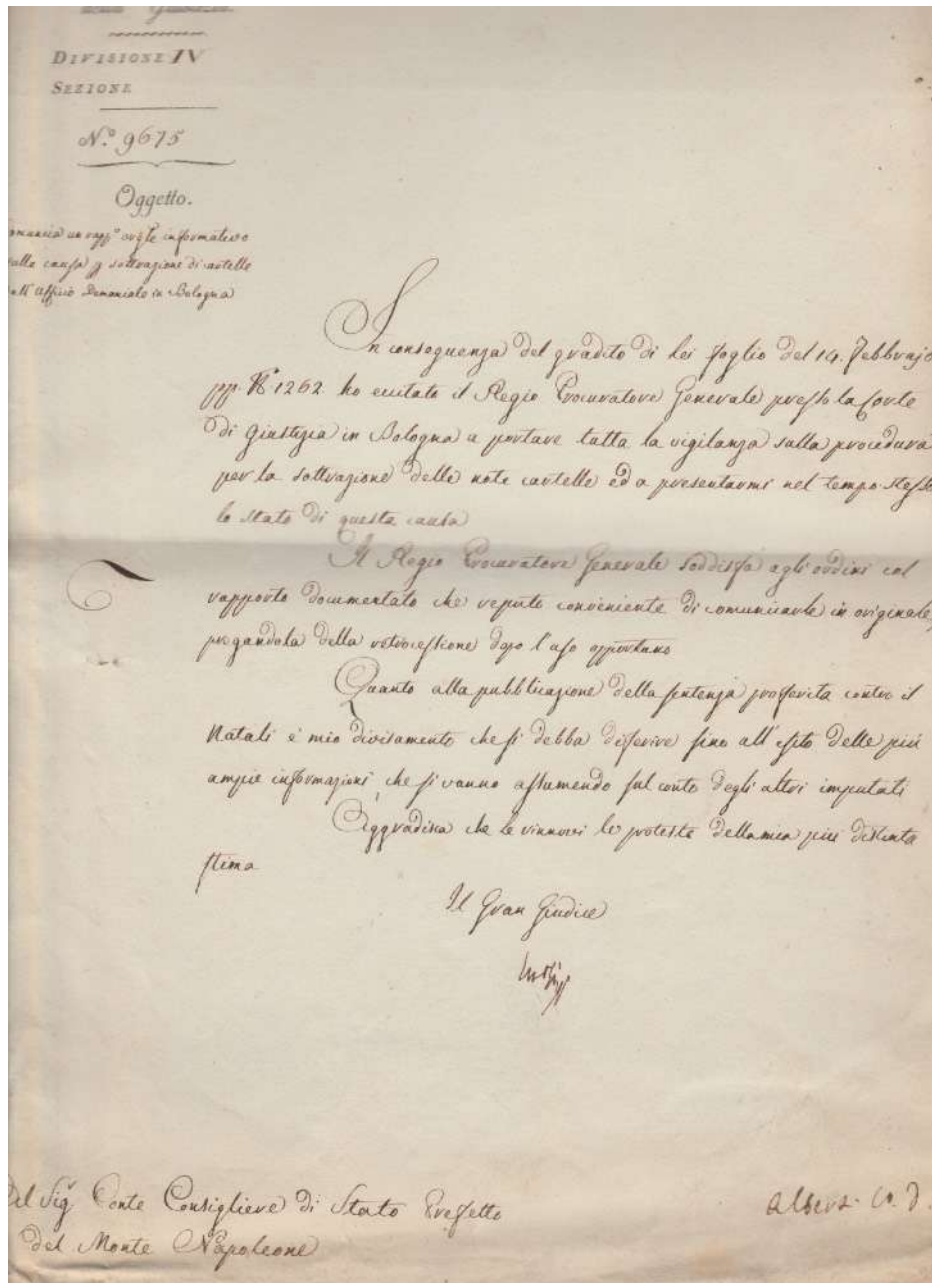 Divisione IV
Sezione
N.º 9675
Oggetto.
un rapp.º informativo
causa p sottrazione di cartelle
Ufficio Demaniale in Bologna
In conseguenza del gradito di Lei foglio del 14. Febbrajo
pp. Nº 1262 ho eccitato il Regio Procuratore Generale presso la Corte
di Giustizia in Bologna a portare tutta la vigilanza sulla procedura
per la sottrazione delle note cartelle ed a presentarmi nel tempo stesso
lo stato di questa causa
Il Regio Procuratore Generale soddisfa agli ordini col
rapporto documentato che reputo conveniente di comunicarle in originale,
pregandola della retrocessione dopo l'uso opportuno
Quanto alla pubblicazione della sentenza profferita contro il
Natali è mio divisamento che si debba differire fino all'esito delle più
ampie informazioni, che si vanno assumendo sul conto degli altri imputati
Aggradisca che le rinnovi le proteste della mia più distinta
stima
Il Gran Giudice
Luosi
Al Sigr Conte Consigliere di Stato Prefetto
del Monte Napoleone